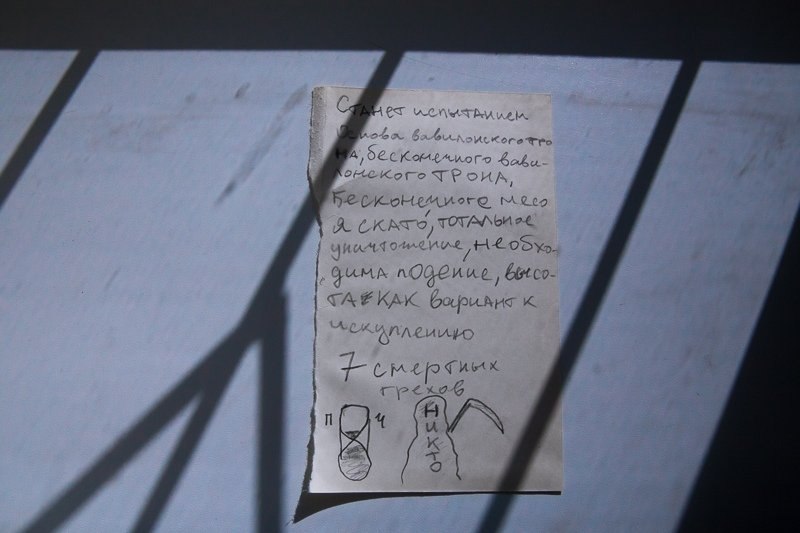 Станет испытанием
Основа вавилонского тро
на, бесконечного вави-
лонского ТРОНА,
Бесконечного месо
я СКАТО, ТОТАЛЬНОЕ
уничтожение, необхо-
дима подение, высо-
ТА КАК вариант к
искуплению
7 смертных
грехов
П Ч
НИКТО